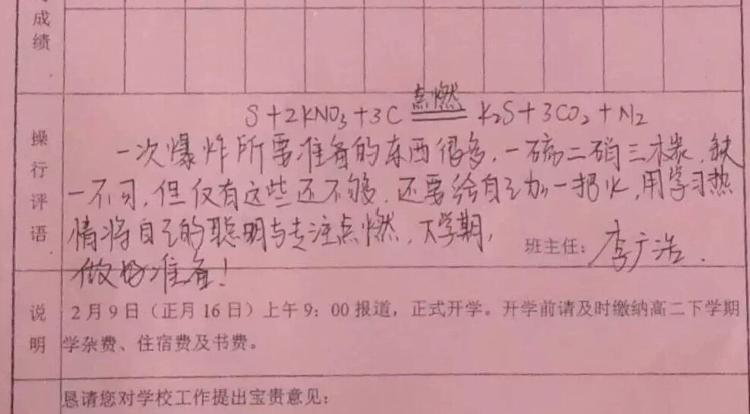 成
绩
操
行
评
语
S+2KNO₃+3C 点燃 K₂S+3CO₂+N₂
一次爆炸所需准备的东西很多,一硫二硝三木炭,缺
一不可,但仅有这些还不够,还要给自己加一把火,用学习热
情将自己的聪明与专注点燃,下学期,
做好准备!
班主任:李广浩.
说
明
2月9日(正月16日)上午9:00报道,正式开学。开学前请及时缴纳高二下学期
学杂费、住宿费及书费。
恳请您对学校工作提出宝贵意见: